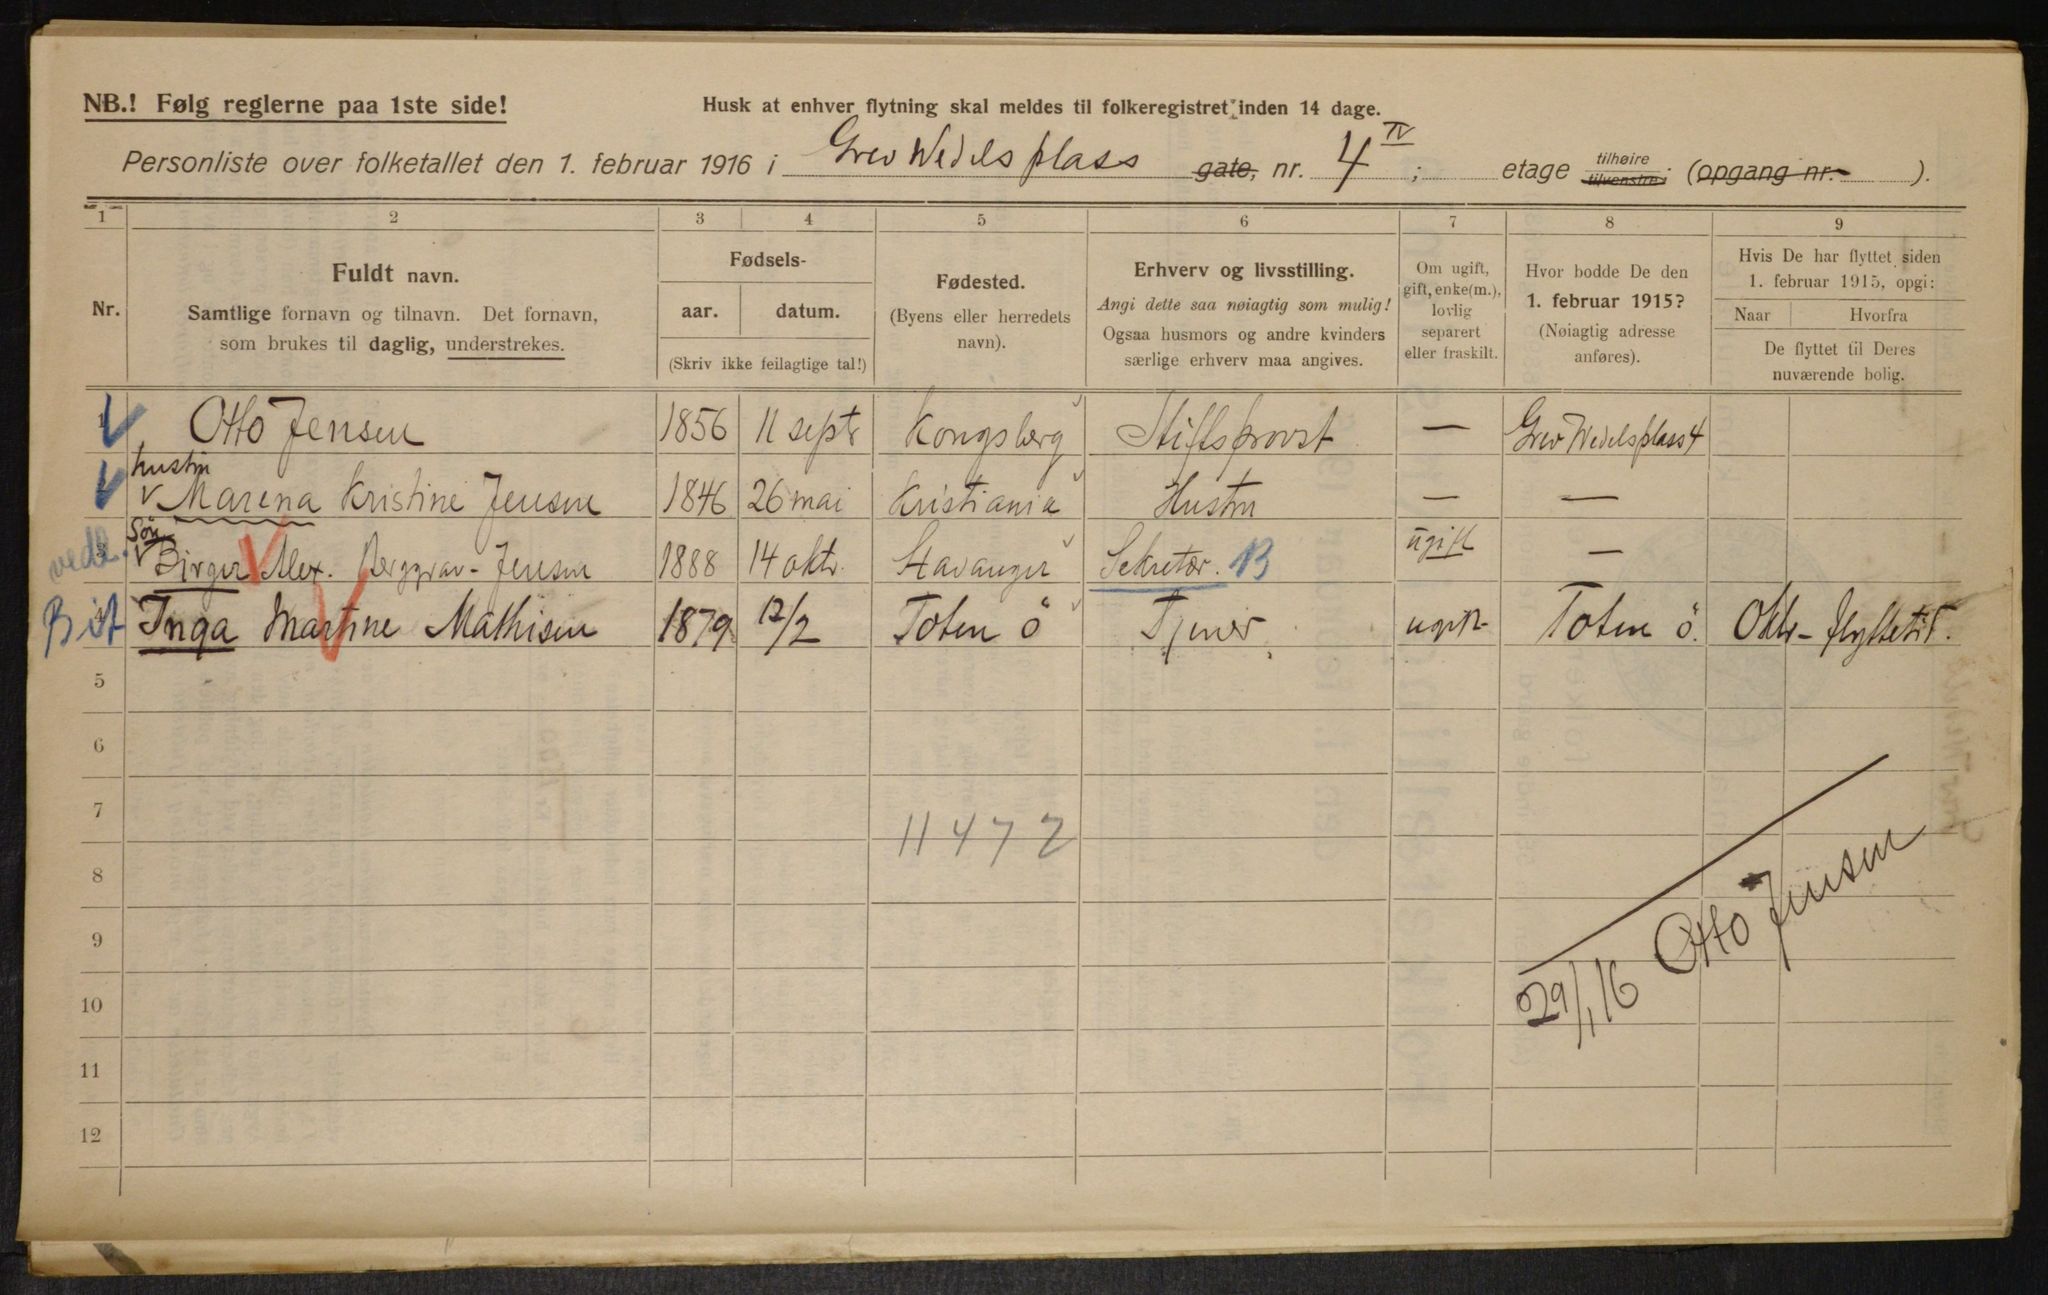 NB.! Følg reglerne paa 1ste side!
Husk at enhver flytning skal meldes til folkeregistret inden 14 dage.
Personliste over folketallet den 1. februar 1916 i Grev Wedels plass gate, nr. 4 IV ; etage tilhøire tilvenstre; (opgang nr. ).
1 2 3 4 5 6 7 8 9
Nr.
Fuldt navn.
Samtlige fornavn og tilnavn. Det fornavn,
som brukes til daglig, understrekes.
Fødsels-
aar. datum.
(Skriv ikke feilagtige tal!)
Fødested.
(Byens eller herredets
navn).
Erhverv og livsstilling.
Angi dette saa nøiagtig som mulig!
Ogsaa husmors og andre kvinders
særlige erhverv maa angives.
Om ugift,
gift, enke(m.),
lovlig
separert
eller fraskilt.
Hvor bodde De den
1. februar 1915?
(Nøiagtig adresse
anføres).
Hvis De har flyttet siden
1. februar 1915, opgi:
Naar Hvorfra
De flyttet til Deres
nuværende bolig.
1 Otto Jensen 1856 11 septr Kongsberg Stiftsprovst — Grev Wedelsplass 4
hustru
Marena Kristine Jensen 1846 26 mai Kristiania Hustru — —
Søn
vedl. 3 Birger Alex. Berggrav-Jensen 1888 14 oktr. Stavanger Sekretær. B ugift —
Bist Inga Martine Mathisen 1879 12/2 Toten ö Tjener ugift Toten ö. Oktr-
5
6
7
11472
8
9
10
11
12
29/1 16 Otto Jensen